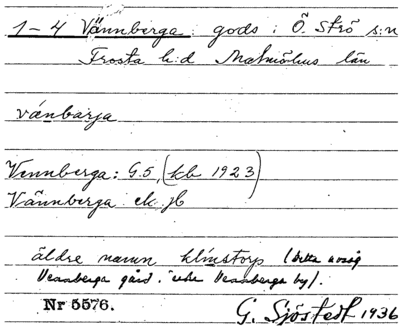 1-4 Vännberga: gods i Ö. Strö s:n
Frosta h:d Malmöhus län
vánbarja
Vennberga: G.5, (kb 1923)
Vännberga ek. jb
äldre namn klinstorp (detta avsåg
Vennberga gård. icke Vennberga by).
Nr 5576.
G. Sjöstedt 1936